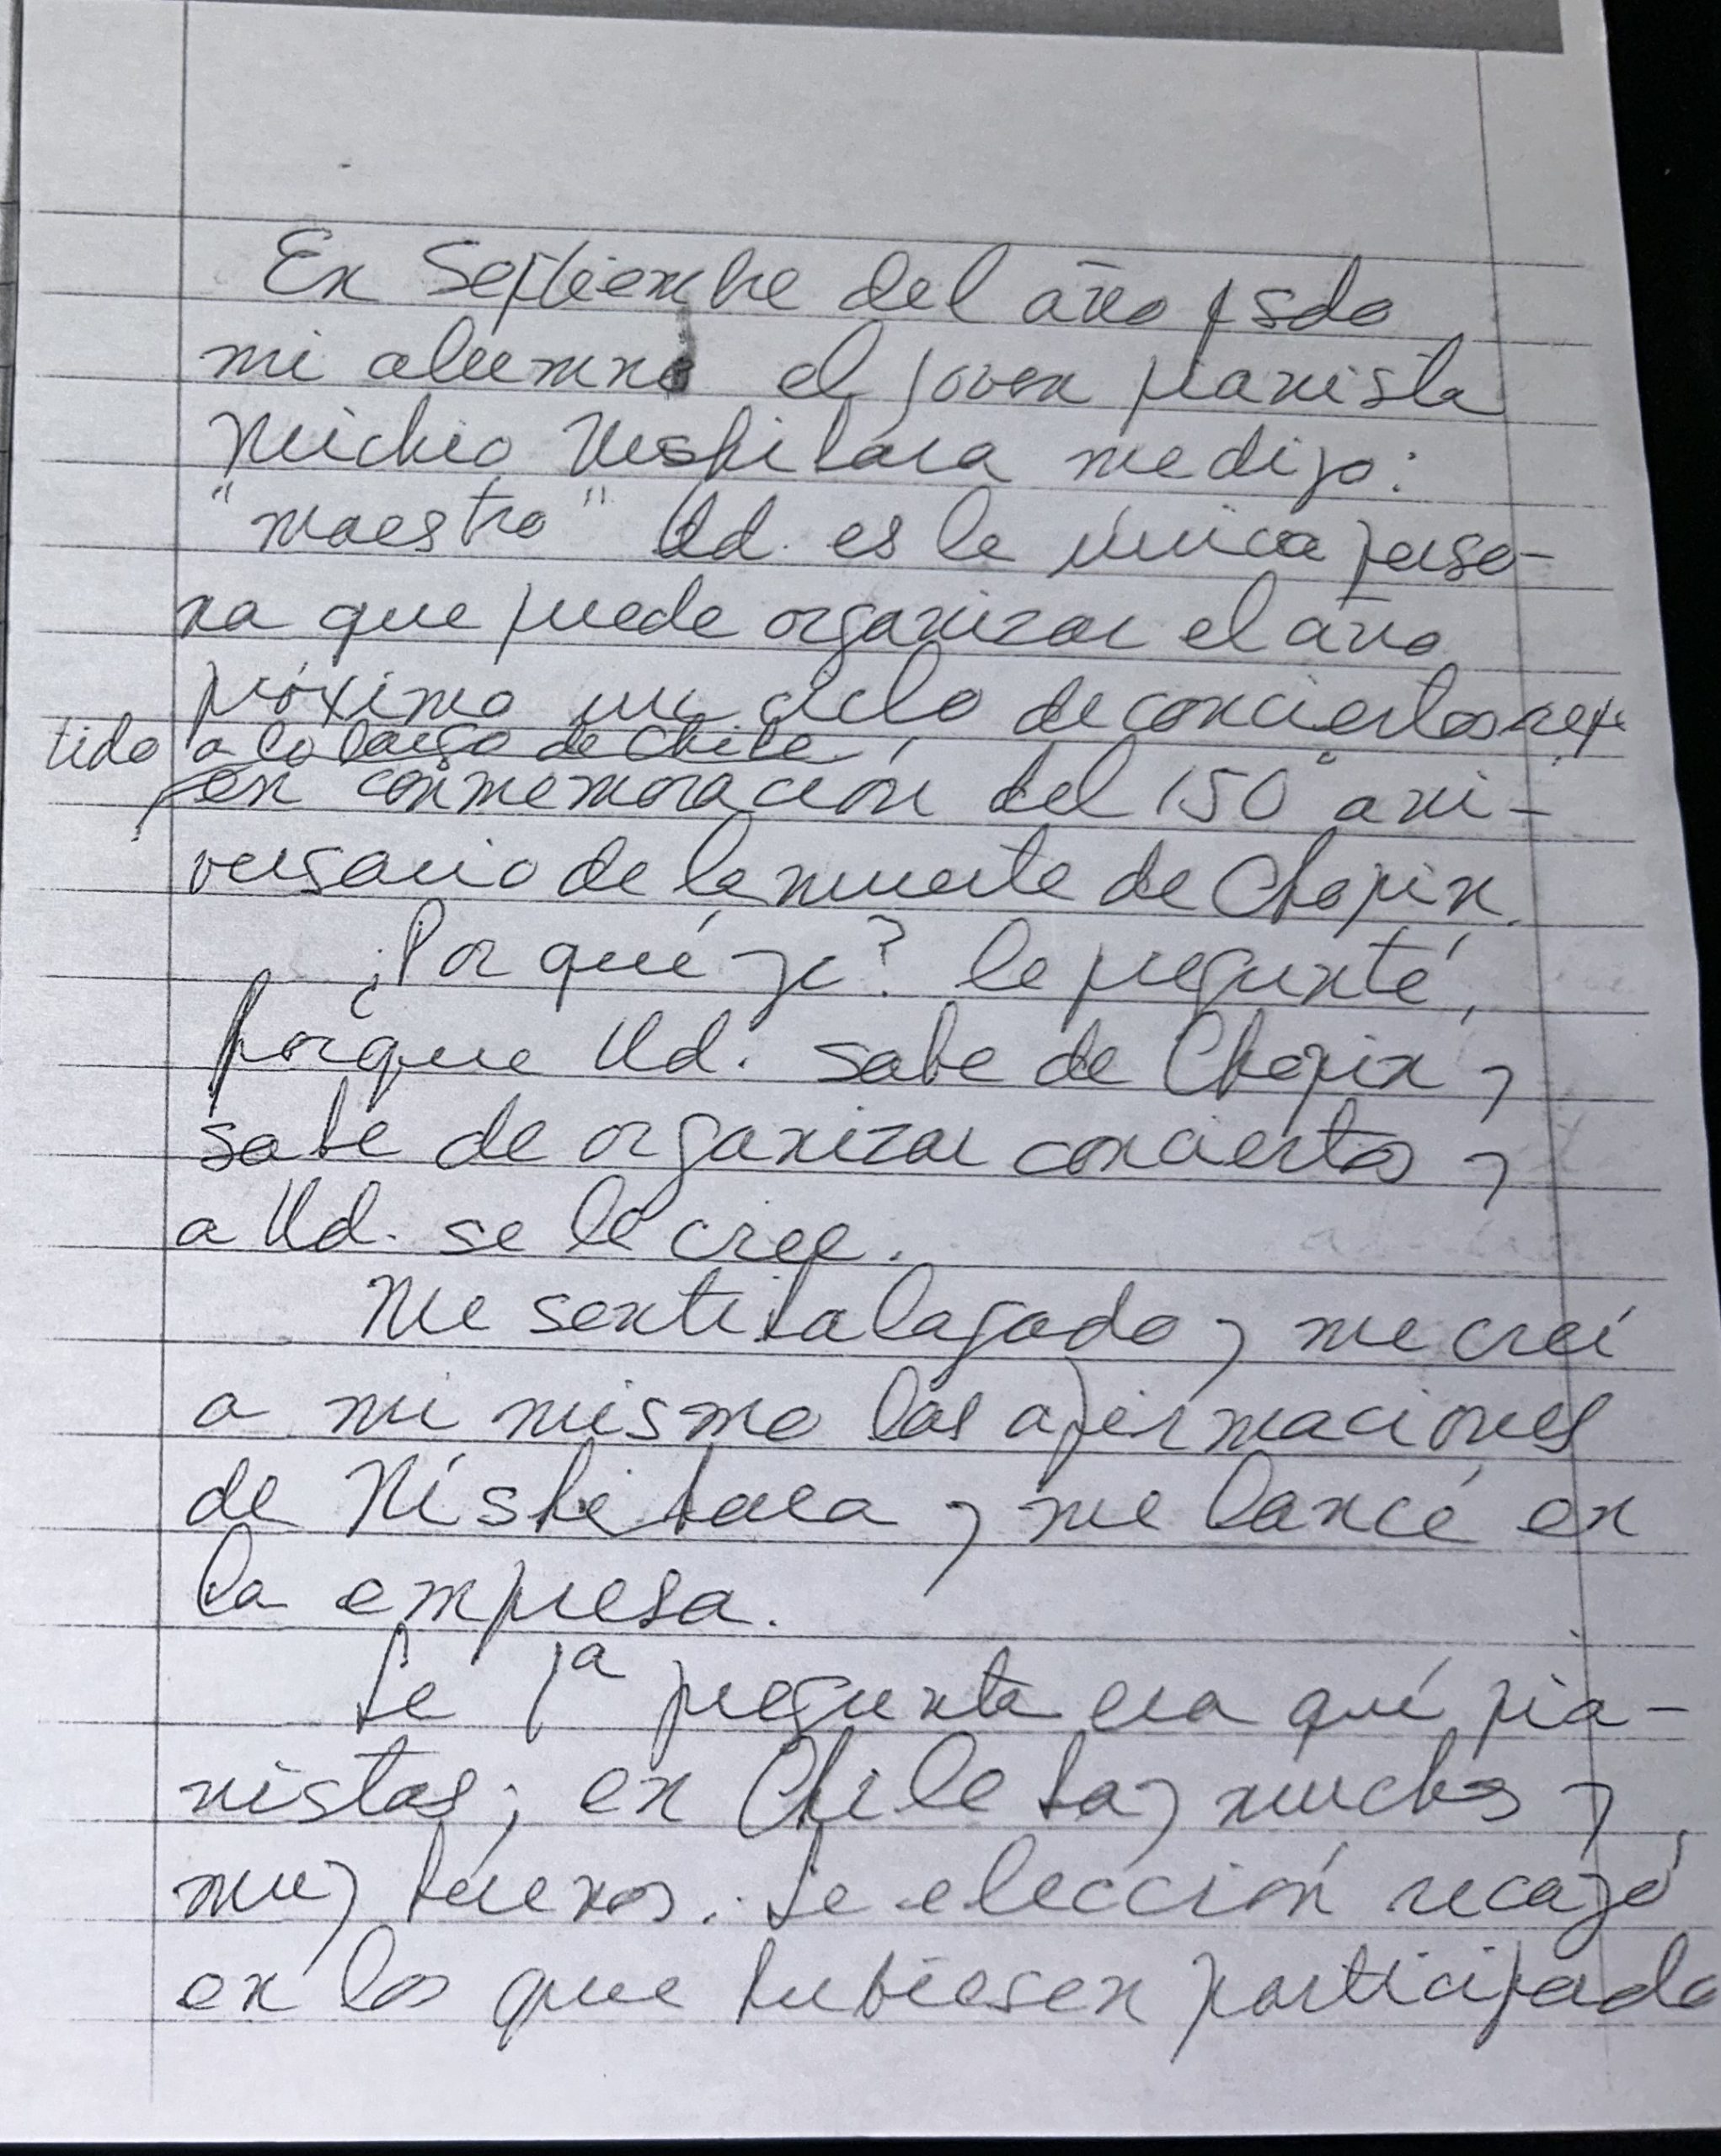 En Septiembre del año psdo
mi alumno el joven pianista
Michio Nishihara me dijo:
"maestro" Ud. es la única perso-
na que puede organizar el año
próximo un ciclo de conciertos repe
tido a lo largo de Chile
en conmemoración del 150° ani-
versario de la muerte de Chopin.
¿Por qué yo? le pregunté,
porque Ud. sabe de Chopin y
sabe de organizar conciertos y
a Ud. se le cree.
Me sentí halagado y me creí
a mi mismo las afirmaciones
de Nishihara y me lancé en
la empresa.
La 1a pregunta era qué pia-
nistas; en Chile hay muchos y
muy buenos. La elección recayó
en los que hubiesen participado